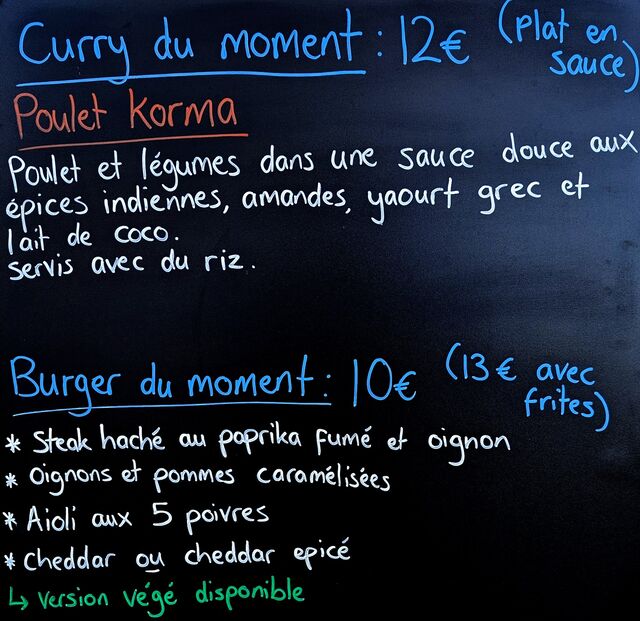 Curry du moment : 12€ (plat en sauce)
Poulet Korma
Poulet et légumes dans une sauce douce aux
épices indiennes, amandes, yaourt grec et
lait de coco.
servis avec du riz.
Burger du moment : 10€ (13€ avec frites)
* Steak haché au paprika fumé et oignon
* Oignons et pommes caramélisées
* Aioli aux 5 poivres
* Cheddar ou cheddar epicé
↳ version végé disponible